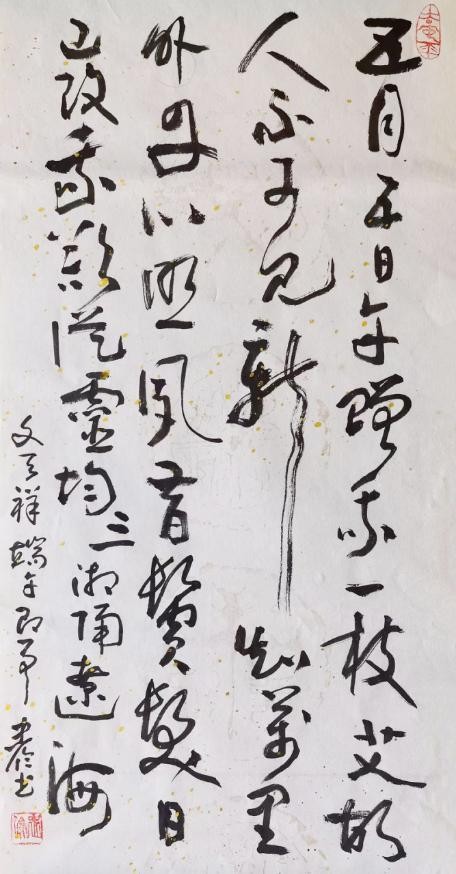 五月五日午贈我一枝艾故
人不可見新知萬里
外丹心照夙昔鬢髮日
已改我欲從靈均三湘隔遼海
文天祥端午即事